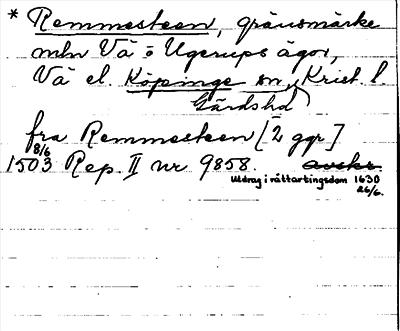 * Remmesteen, gränsmärke
mln Vä o Ugerups ägor,
Vä el. Köpinge sn, Krist. l.
Gärdshd
fra Remmesteen [2 ggr]
8/6
1503 Rep. II nr 9858. avskr.
Utdrag i rättartingsdom 1630
26/6.